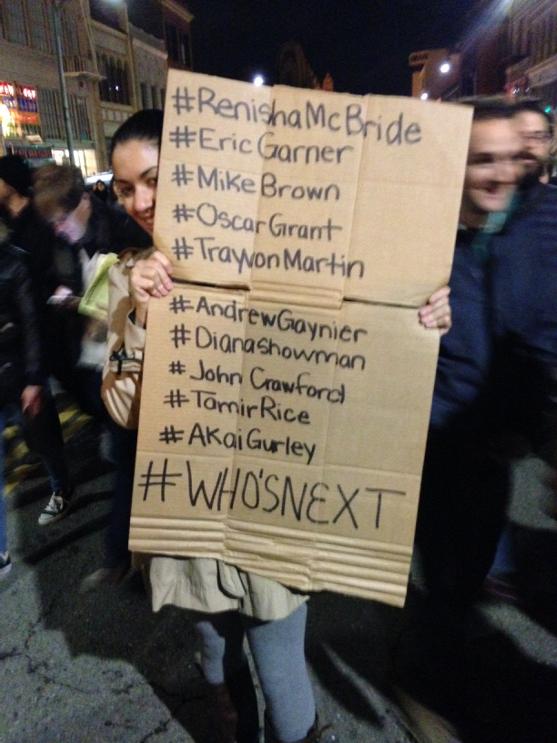 #RenishaMcBride
#EricGarner
#MikeBrown
#OscarGrant
#TrayvonMartin
#AndrewGaynier
#Dianashowman
#John Crawford
#TamirRice
#AKaiGurley
#WHO'SNEXT